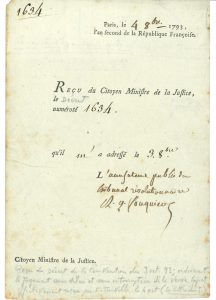 1634
Paris, le 4 8bre 1793.
l'an second de la République Françoise.
REÇU du Citoyen Ministre de la Justice,
le décret
numéroté 1634.
qu'il m'a adressé le 3. 8bre
L'accusateur public du
tribunal révolutionnaire
A. q. fouquier
Citoyen Ministre de la Justice.
décret de la Convention du 3 oct 93,